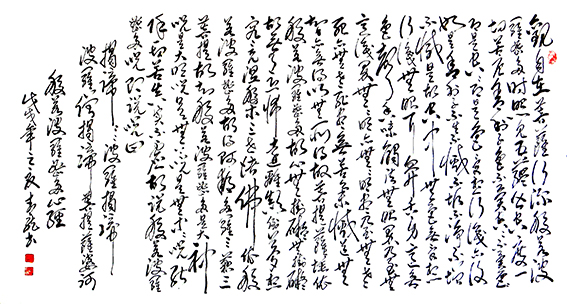 觀自在菩薩行深般若波
羅蜜多時照見五蘊皆空度一
切苦厄舍利子色不異空空不異色
色即是空空即是色受想行識亦復
如是舍利子是諸法空相不生不滅不垢不淨不增
不減是故空中無色無受想
行識無眼耳鼻舌身意無
色聲香味觸法無眼界乃至無
意識界無無明亦無無明盡乃至無老
死亦無老死盡無苦集滅道無
智亦無得以無所得故菩提薩埵依
般若波羅蜜多故心無罣礙無罣礙
故無有恐怖遠離顛倒夢想
究竟涅槃三世諸佛依般
若波羅蜜多故得阿耨多羅三藐三
菩提故知般若波羅蜜多是大神
咒是大明咒是無上咒是無等等咒能
除一切苦真實不虛故說般若波羅
蜜多咒即說咒曰
揭諦揭諦波羅揭諦
波羅僧揭諦菩提薩婆訶
般若波羅蜜多心經
戊戌年之夏